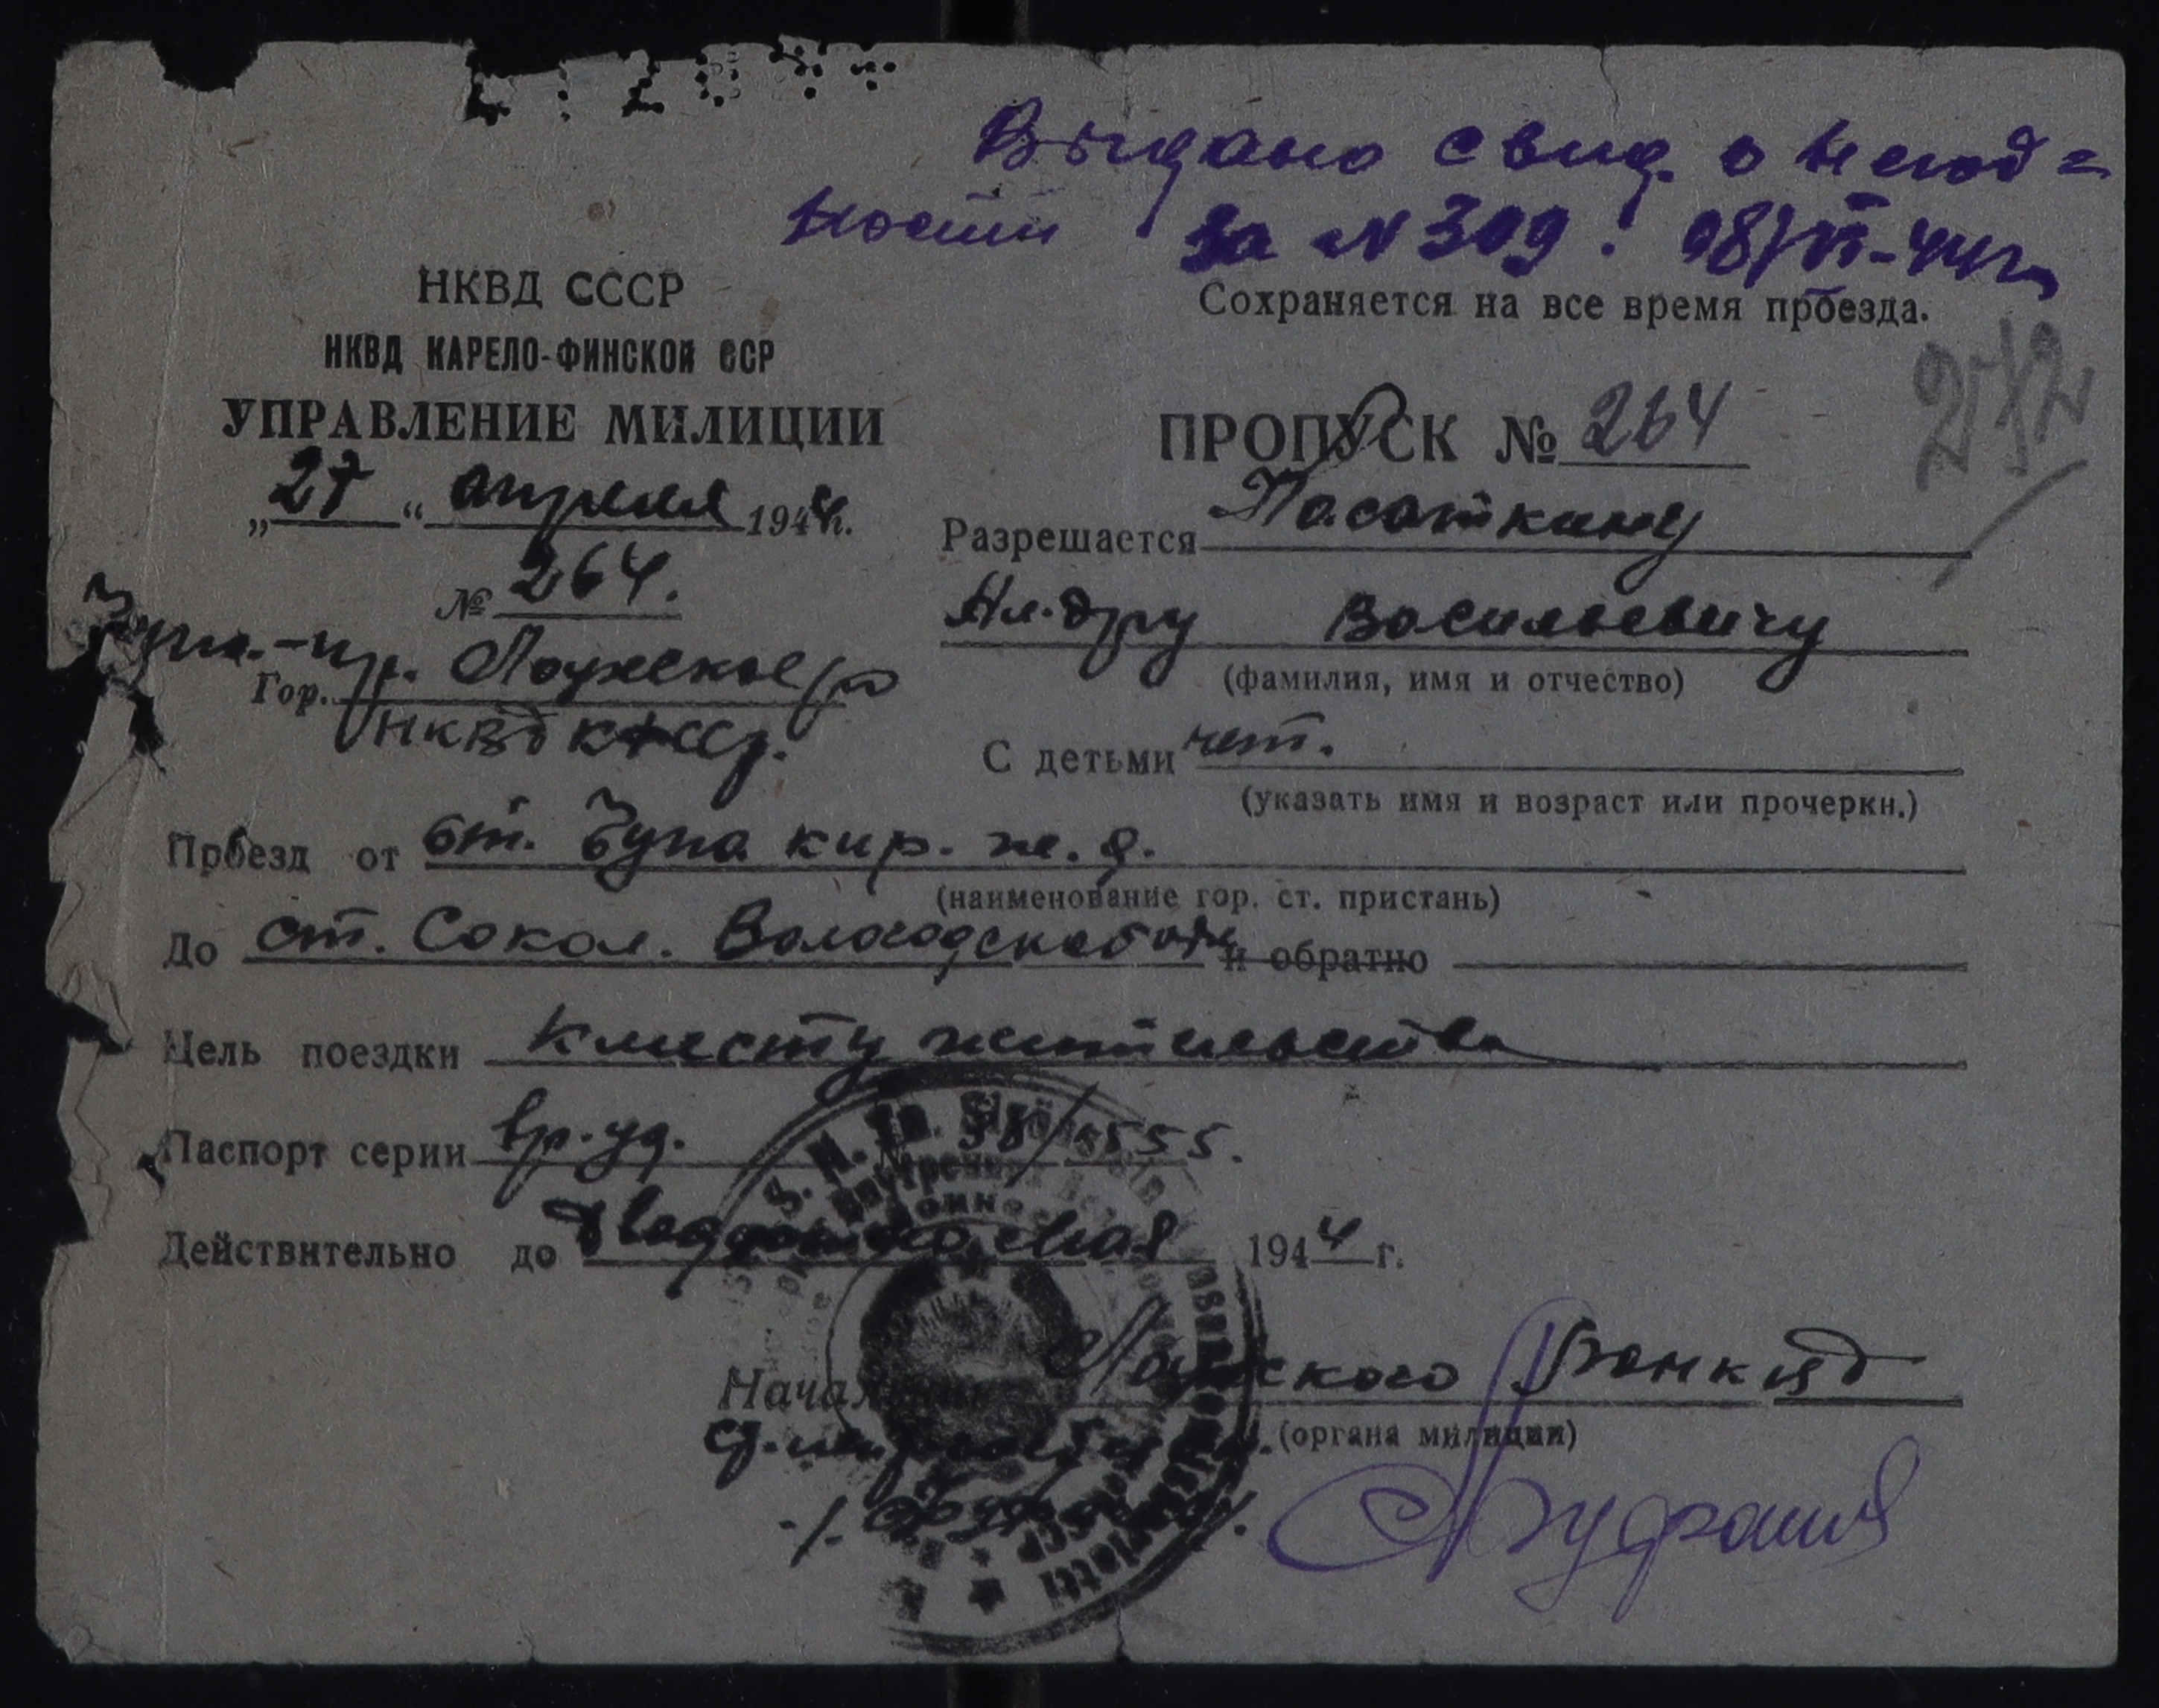 Выдано свид. о негод=
ности за № 309. 08/VI-44г.
НКВД СССР
НКВД КАРЕЛО-ФИНСКОЙ ССР
УПРАВЛЕНИЕ МИЛИЦИИ
„27“ апреля 1944г.
№ 264.
Гор. Лоухское р/о
НКВД КФССР.
Сохраняется на все время проезда.
272
ПРОПУСК № 264
Разрешается Пасаткину
Ал-дру Васильевичу
(фамилия, имя и отчество)
С детьми нет.
(указать имя и возраст или прочеркн.)
Проезд от ст. Чупа кир. ж. д.
(наименование гор. ст. пристань)
До ст. Сокол. Вологодской обл. и обратно
Цель поездки к месту жительства
Паспорт серии вр. уд.
Действительно до Двадцатого мая 1944 г.
Лоухского РОНКВД
(органа милиции)